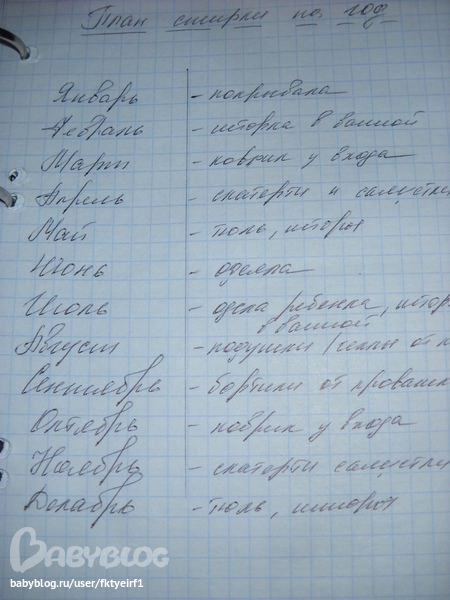 План стирки на год
Январь - покрывала
Февраль - шторка в ванной
Март - коврик у входа
Апрель - скатерти и салфетки
Май - тюль, шторы
Июнь - одеяла
Июль - одеяла ребенка, штор
в ванной
Август - подушки
Сентябрь - бортики от кроватки
Октябрь - коврик у входа
Ноябрь - скатерти салфетки
Декабрь - тюль, шторы
BABYBLOG
babyblog.ru/user/fktyeirf1